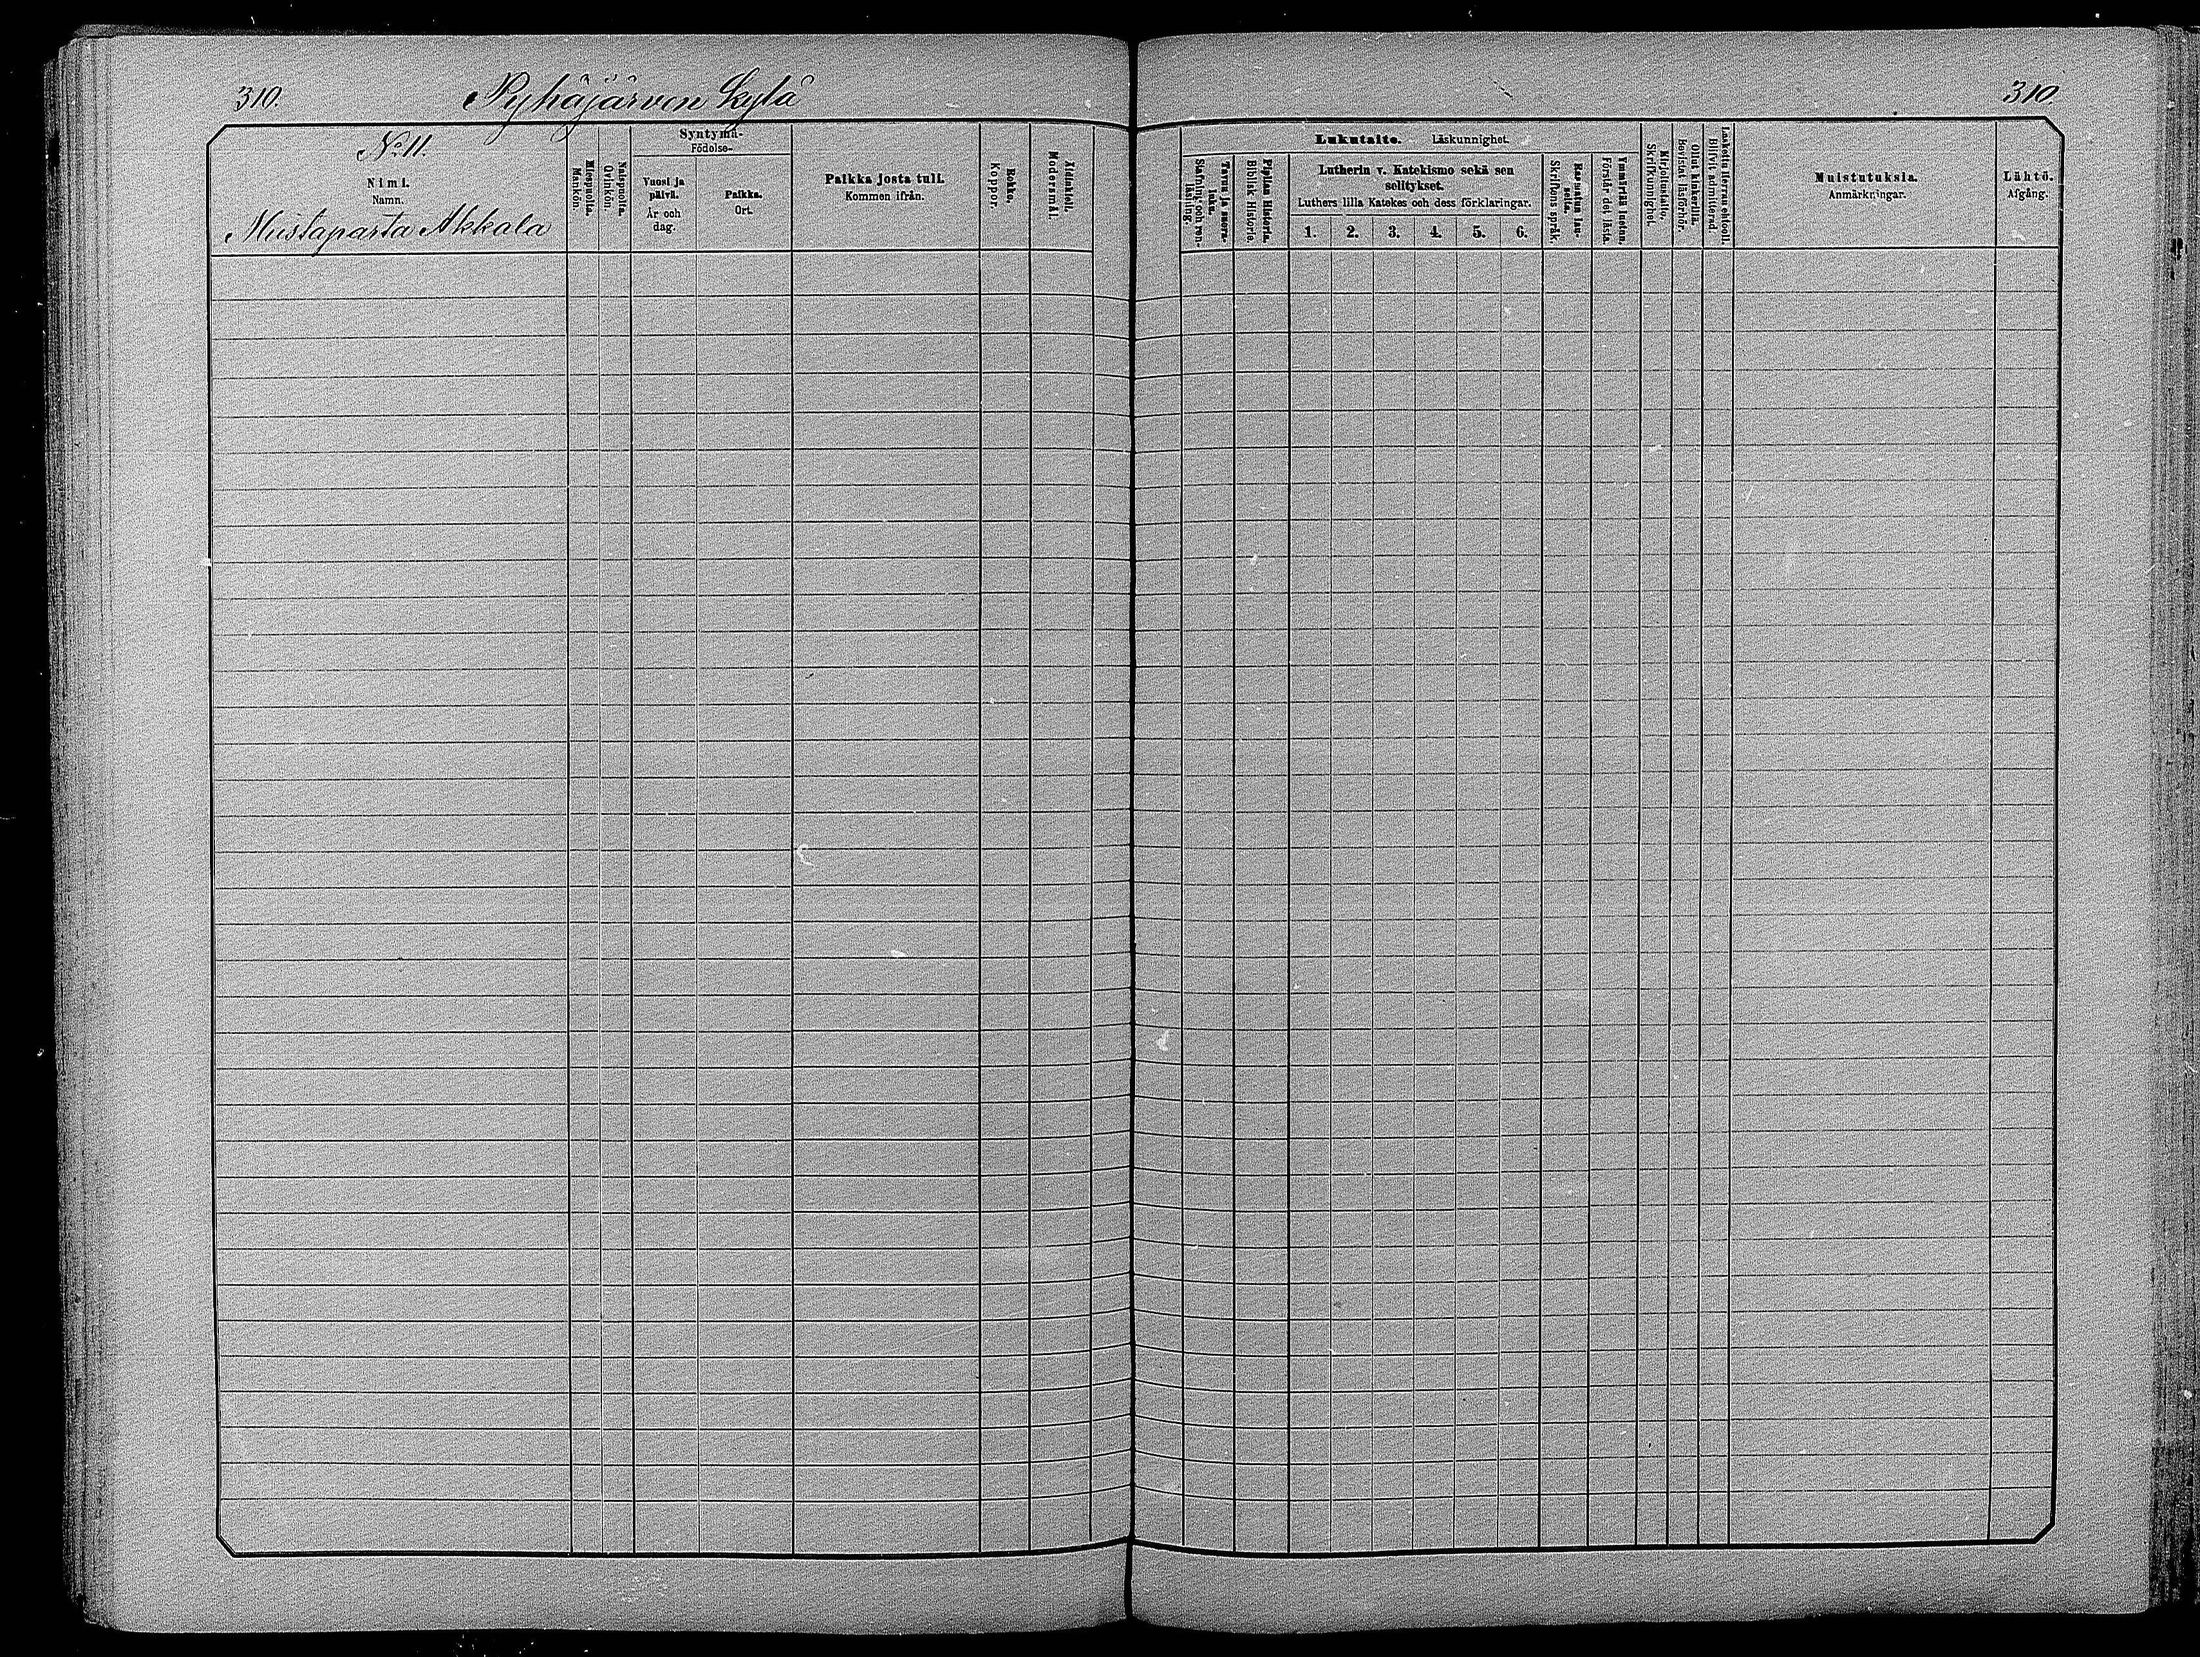 310.
Pyhäjärven kylä
310.
No 11.
Nimi.
Namn.
Mustaparta Akkala
Miespuolia.
Mankön.
Naispuolia.
Qvinkön.
Syntymä-
Födelse-
Vuosi ja
päivä.
År och
dag.
Paikka.
Ort.
Paikka josta tuli.
Kommen ifrån.
Rokko.
Koppor.
Äitinkieli.
Modersmål.
Lukutaito. Läskunnighet.
Tavuu ja suora-
luku.
Stafning och ren-
läsning.
Piplian Historia.
Biblisk Historie.
Lutherin v. Katekismo sekä sen
selitykset.
Luthers lilla Katekes och dess förklaringar.
1. 2. 3. 4. 5. 6.
Raamatun lau-
seita.
Skriftens språk.
Ymmärtää luetun.
Förstår det lästa.
Kirjoitustaito.
Skrifkunnighet.
Ollut kinkerillä.
Bevistat läsförhör.
Laskettu Herran ehtooll.
Blifvit admitterad.
Muistutuksia.
Anmärkningar.
Lähtö.
Afgång.